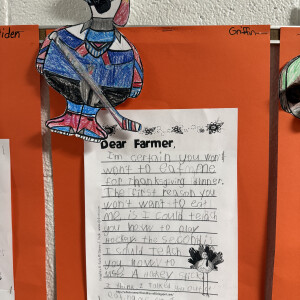 iden
Griffin
Dear Farmer,
I'm certain you won't
want to eat me
for thanksgiving dinner.
The first reason you
won't want to eat
me is I could teach
you how to play
hockey the second is
I could teach
you how to
use a hockey